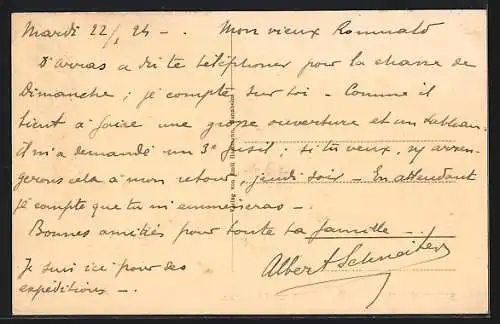 Mardi 22/1 24 -. Mon vieux Romuald
D'Arras a dû te téléphoner pour la chasse de
Dimanche ; je compte sur toi - Comme il
tient à faire une grosse ouverture et un tableau
il m'a demandé un 3e fusil ; si tu veux, ns arran-
gerons cela à mon retour, jeudi soir - En attendant
je compte que tu m'emmèneras -
Bonnes amitiés pour toute ta famille -
Je suis ici pour des
expéditions -.
Albert Schneider
Verlag von